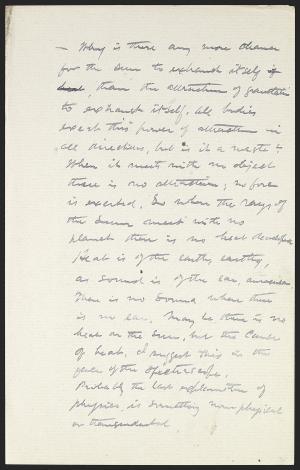 — Why is there any more chance
for the Sun to exhaust itself
than the attraction of gravitation
to exhaust itself. All bodies
exert this power of attraction in
all directions, but is it a waste?
When it meets with no object
there is no attraction, no force
is exerted. So when the rays of
the Sun meet with no
planet there is no heat developed
Heat is of the earth, earthy,
as sound is of the ear,
There is no sound where there
is no ear. May be there is no
heat on the Sun, but the cause
of heat. I suggest this in the
year of the
Probably the last explanation of
physics, is something non-physical
or transcendental.